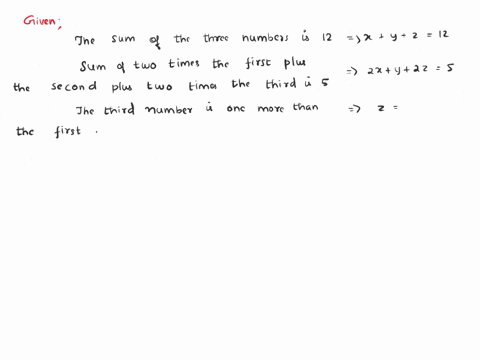 Given;
The sum of the three numbers is 12 => x + y + z = 12
Sum of two times the first plus
the second plus two times the third is 5 => 2x + y + 2z = 5
The third number is one more than => z =
the first .